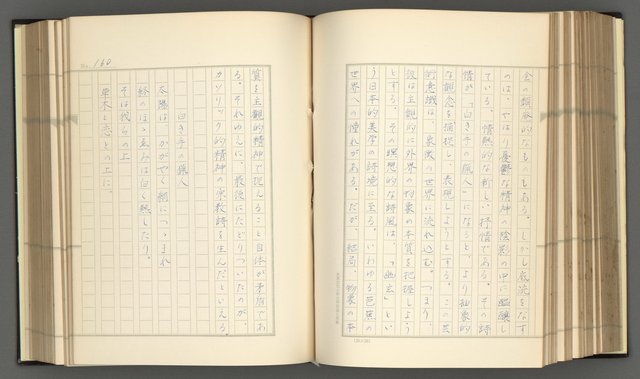 会の頽廃的なものもある。しかし底流をなす
のは、やはり憂鬱な精神の陰影の中に醞醸し
ている。情熱的な新しい抒情である。その詩
情が「白き手の猟人」になると、より抽象的
な観念を捕捉し、表現しようとする。この芸
術意識は、象徴の世界に流れ込む。つまり、
彼は主観的に外界の物象の本質を把握しよう
とする。その瞑想的な詩風は、「幽玄」とい
う日本的美学の詩境に至る。いわゆる芭蕉の
世界への憧れがある。だが、結局、物象の本
No. 160
質を主観的精神で捉えること自体が矛盾であ
る。それゆえに、最後にたどりついたのが、
カソリック的精神の宗教詩を生んだといえる。
白き手の猟人
太陽は かがやく額につつまれ
終のほゝゑみは白く熱したり。
そは我らの上
草木と恋との上に。